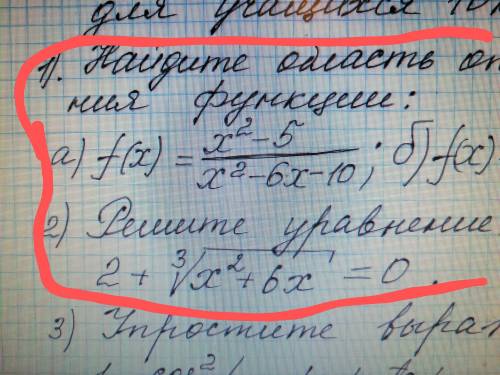 для учащихся 10
1). Найдите область оп
ния функции:
а) f(x) = x²-5 / x²-6x-10 ; б) f(x)
2) Решите уравнение
2 + ∛x²+6x = 0.
3) Упростите выраж